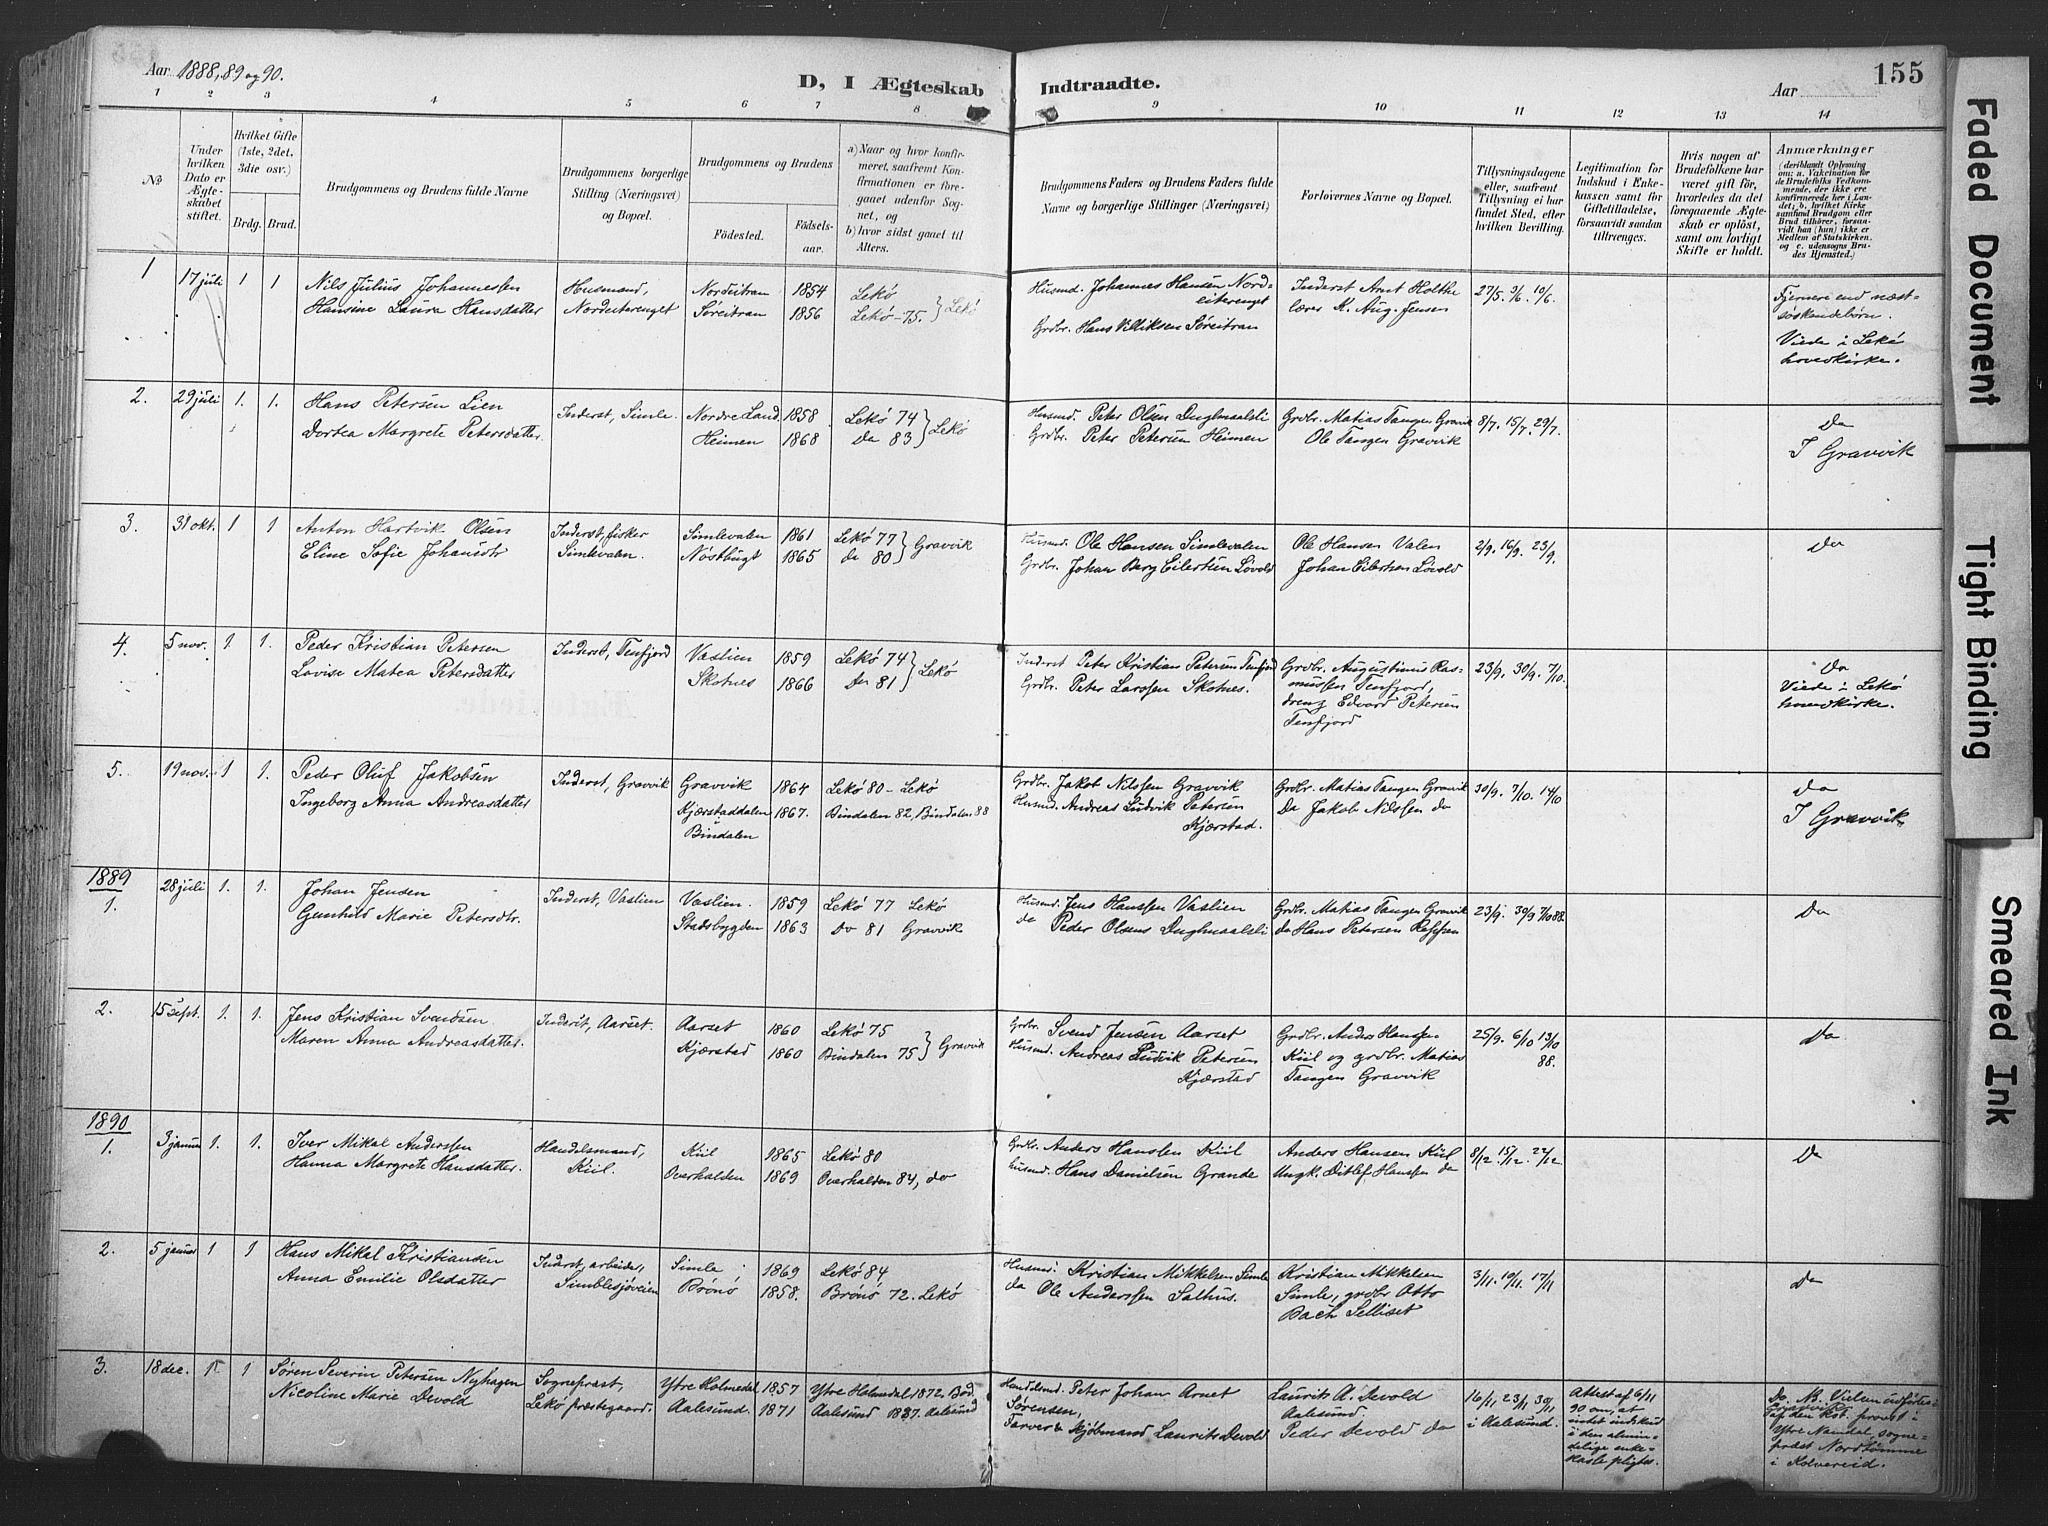 Aar 1888, 89 og 90.
D, I Ægteskab Indtraadte.
Aar
155
1 2 3 4 5 6 7 8 9 10 11 12 13 14
No
Under hvilken Dato er Ægteskabet stiftet.
Hvilket Gifte (1ste, 2det, 3die osv.)
Brdg. Brud.
Brudgommens og Brudens fulde Navne
Brudgommens borgerlige Stilling (Næringsvei) og Bopæl.
Brudgommens og Brudens
Födested. Födselsaar.
a) Naar og hvor konfirmeret, saafremt Konfirmationen er foregaaet udenfor Sognet, og
b) hvor sidst gaaet til Alters.
Brudgommens Faders og Brudens Faders fulde Navne og borgerlige Stillinger (Næringsvei)
Forlovernes Navne og Bopæl.
Tillysningsdagene eller, saafremt Tillysning ei har fundet Sted, efter hvilken Bevilling.
Legitimation for Indskud i Enkekassen samt for Giftetilladelse, forsaavidt saadan tiltrænges.
Hvis nogen af Brudefolkene har været gift för, hvorledes da det foregaaende Ægteskab er oplöst, samt om lovligt Skifte er holdt.
Anmærkninger
(deriblandt Oplysning om: a. Vakcination for de Brudefolks Vedkommende, der ikke ere konfirmerede her i Landet; b. hvilket Kirkesamfund Brudgom eller Brud tilhörer, forsaavidt han (hun) ikke er Medlem af Statskirken; og c. udensogns Brudes Hjemsted.)
1 17 juli 1 1 Nils Julius Johannessen Husmand, Nordeitran 1854 Lekø Husmd. Johannes Hansen Nord- Inderst Arnt Holthe 27/5. 3/6. 10/6. Fjernere end næst-
Hansine Laura Hansdatter Nordeiterenget Søreitran 1856 Lekø - 75. } Lekø eiterenget lærer K. Aug. Jensen søskendebørn.
Grdbr. Hans Villiksen Søreitran Viede i Lekø
hovedkirke.
2. 29 juli 1. 1. Hans Petersen Lien Inderst, Simle. Nordre Land 1858 Lekø 74 Husmd. Peter Olsen Duglmaalsli Grdbr. Matias Tangen Gravvik 8/7. 15/7. 29/7. Do
Dortea Margrete Petersdatter. Heimen 1868 do 83 } Lekø Grdbr. Peter Petersen Heimen Ole Tangen Gravvik I Gravvik
3. 31 okt. 1 1 Anton Hartvik Olsen Inderst, fisker Simlevalen 1861 Lekø 77 Husmd. Ole Hansen Simlevalen Ole Hansen Valen 2/9. 16/9. 23/9. Do
Eline Sofie Johansdtr Simlevalen. Nøstbugt 1865 do 80 } Gravvik Grdbr. Johan Berg Eilertsen Løvold Johan Eilertsen Løvold
4. 5 nov. 1. 1. Peder Kristian Petersen Inderst, Tenfjord Vaslien 1859 Lekø 74 Inderst Peter Kristian Petersen Tenfjord Grdbr. Augustinus Ras- 23/9. 30/9. 7/10. Do
Lovise Matea Petersdatter Skotnes 1866 Do 81 } Lekø Grdbr. Peter Larssen Skotnes. mussen Tenfjord, Viede i Lekø
dreng Edvard Petersen hovedkirke.
Tenfjord
5. 19 nov. 1 1. Peder Oluf Jakobsen Inderst, Gravvik Gravvik 1864 Lekø 80 - Lekø Grdbr. Jakob Nilssen Gravvik Grdbr. Matias Tangen Gravvik 30/9. 7/10. 14/10 Do
Ingeborg Anna Andreasdatter Kjærstaddalen 1867. Bindalen 82, Bindalen 88 Husmd. Andreas Ludvik Petersen Do Jakob Nilssen do I Gravvik
Bindalen Kjærstad.
1889
1. 28 juli 1. 1. Johan Jensen Inderst, Vaslien Vaslien. 1859 Lekø 77 Lekø Husmd. Jens Hanssen Vaslien Grdbr. Matias Tangen Gravvik 23/9. 30/9 7/10 88. Do
Gunhild Marie Petersdtr. Stadsbygden 1863 Do 81 Gravvik do Peder Olsens Duglmaalsli Do Hans Petersen
2. 15 sept. 1. 1. Jens Kristian Svendsen Inderst, Aarset. Aarset 1860 Lekø 75 Grdbr. Svend Jensen Aarset Grdbr. Anders Hanssen 25/9. 6/10 13/10 Do
Maren Anna Andreasdatter. Kjærstad 1860 Bindalen 75 } Gravvik Husmd. Andreas Ludvik Petersen Kiil og grdbr. Matias 88.
Kjærstad Tangen Gravvik
1890
1. 3 januar 1. 1. Iver Mikal Anderssen Handelsmand, Kiil 1865 Lekø 80 Grdbr. Anders Hanssen Kiil Anders Hansen Kiil 8/12. 15/12. 24/12. Do
Hanna Margrete Hansdatter. Kiil. Overhalden 1869 Overhalden 84, do husmd. Hans Danielsen Grande Ungk. Ditlef Hanssen do
2. 5 januar 1 1 Hans Mikal Kristiansen Inderst, arbeider, Simle 1869 Lekø 84 Husmd. Kristian Mikkelsen Simle Kristian Mikkelsen 3/11. 10/11. 17/11 Do
Anna Emilie Olsdatter Simblesjøveien Brønø 1858. Brönö 72. Lekø do Ole Anderssen Salhus. Simle, grdbr Otto
Bach Selliset
3. 18 dec. 1 1 Søren Severin Petersen Nyhagen Sogneprast, Ytre Holmedal 1857 Ytre Holmedal 1872. Bod. Handelsmd. Peter Johan Arnet Laurits A. Devold 16/11 23/11 30/11 Attest af 6/11 Do. NB. Vielsen udførtes i
Nicoline Marie Devold Lekø præstegaard. Aalesund. 1871 Aalesund 1887. Aalesund Sørensen, Aalesund i Aalesund. 90 om, at Gravvik af den kst. provst i
Farver & Kjøbmand Laurits Devold Peder Devold do intet indskud Ytre Namdal, sogne-
i den almin- præst Nordtømme
delige enke- i Kolvereid.
kasse pligtes.
Faded Document
Tight Binding
Smeared Ink